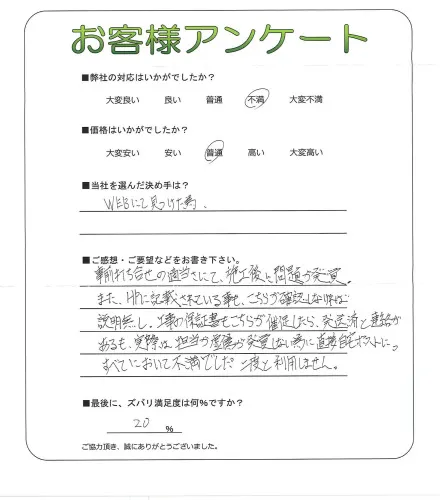 お客様アンケート
■弊社の対応はいかがでしたか?
大変良い 良い 普通 不満 大変不満
■価格はいかがでしたか?
大変安い 安い 普通 高い 大変高い
■当社を選んだ決め手は?
WEBにて見つけた為、
■ご感想・ご要望などをお書き下さい。
打ち合せの適当さにて、施工後に問題が発覚。
また、HPに記載されている事も、こちらが確認しなければ
説明無し、工事の保証書もこちらが催促したら、発送済と連絡が
あるも、実際は担当の が発覚しない為に直接自宅ポストに。
すべてにおいて不満でした。二度と利用しません。
■最後に、ズバリ満足度は何%ですか?
20 %
ご協力頂き、誠にありがとうございました。